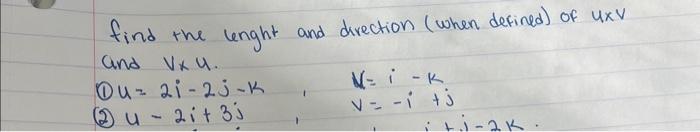 find the lenght and direction (when defined) of u×v
and v×u.
① u = 2i - 2j - k , v = i - k
② u - 2i + 3j , v = -i + j
i + j - 2k .